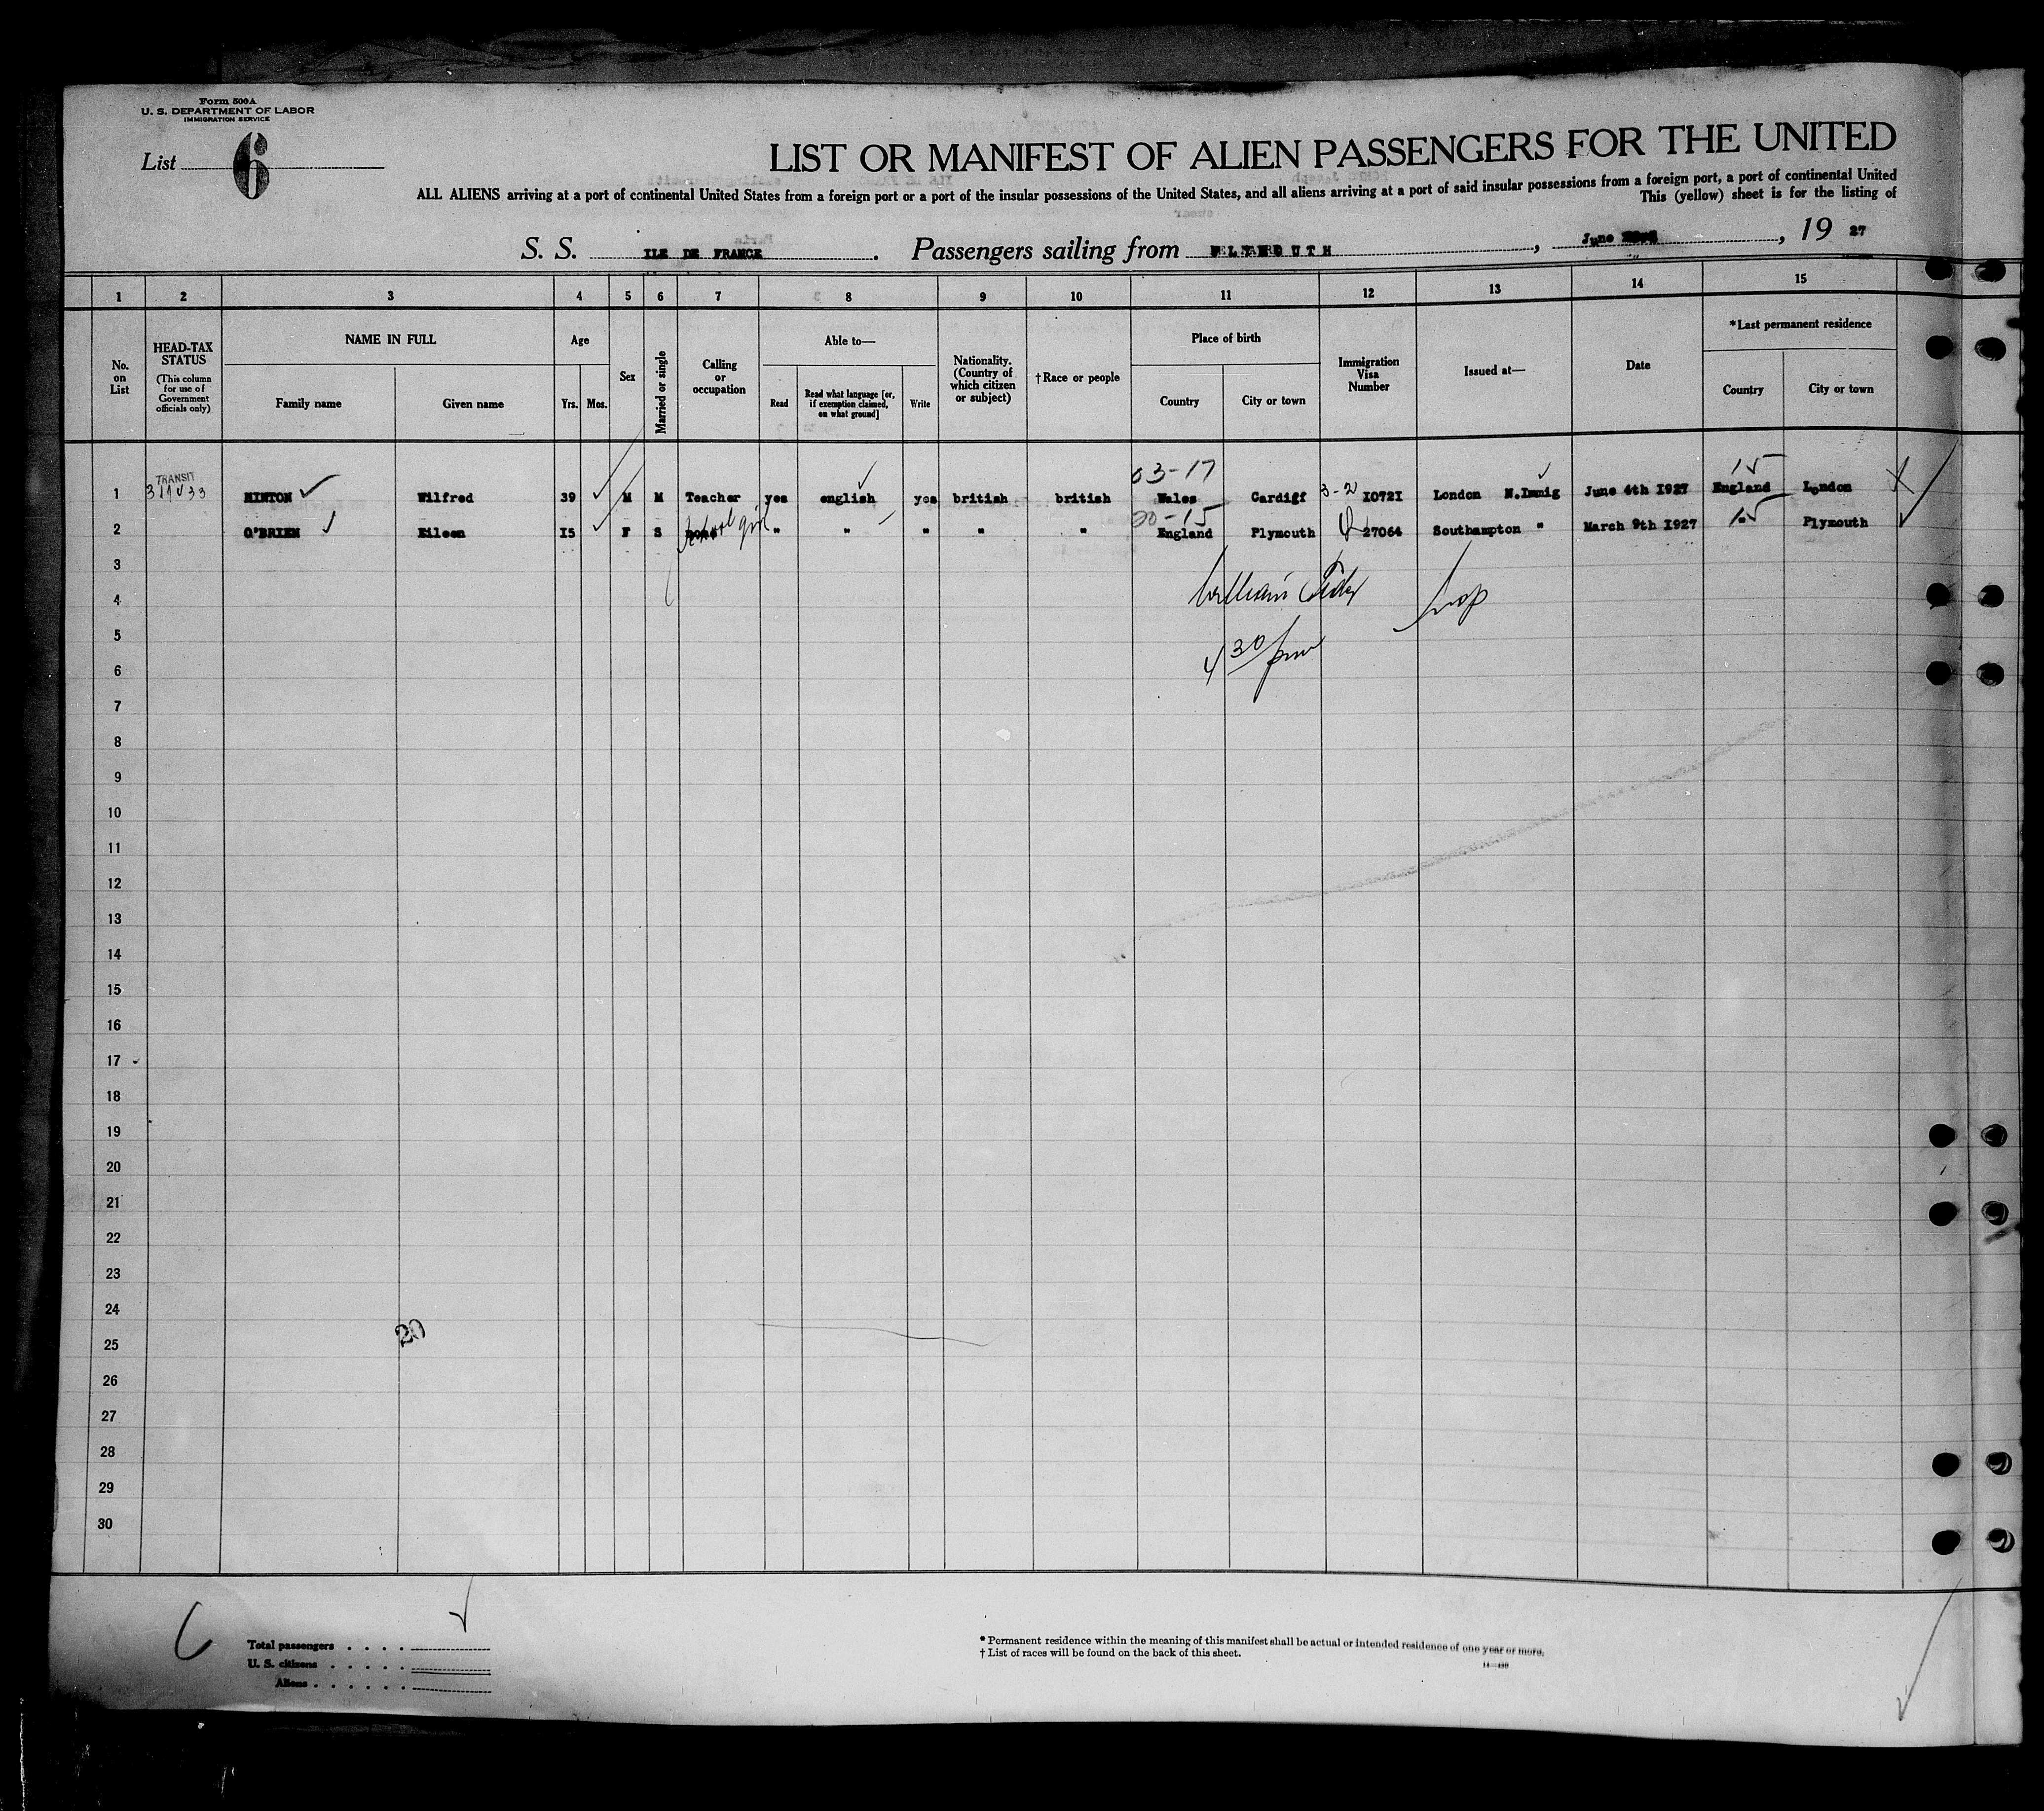 Form 500A
U. S. DEPARTMENT OF LABOR
IMMIGRATION SERVICE
List 6
LIST OR MANIFEST OF ALIEN PASSENGERS FOR THE UNITED
ALL ALIENS arriving at a port of continental United States from a foreign port or a port of the insular possessions of the United States, and all aliens arriving at a port of said insular possessions from a foreign port, a port of continental United
This (yellow) sheet is for the listing of
S. S. ILE DE FRANCE. Passengers sailing from PLYMOUTH, June , 19 27
1 2 3 4 5 6 7 8 9 10 11 12 13 14 15
No. on List
HEAD-TAX STATUS
(This column for use of Government officials only)
NAME IN FULL
Family name
Given name
Age
Yrs. Mos.
Sex
Married or single
Calling or occupation
Able to—
Read
Read what language [or, if exemption claimed, on what ground]
Write
Nationality. (Country of which citizen or subject)
†Race or people
Place of birth
Country
City or town
Immigration Visa Number
Issued at—
Date
*Last permanent residence
Country
City or town
TRANSIT
03-17 15
1 HINTON Wilfred 39 M M Teacher yes english yes british british Wales Cardiff 3-2 10721 London N.Immig June 4th 1927 England London
20-15
2 O'BRIEN Eileen 15 F S School girl " " " " " England Plymouth 27064 Southampton " March 9th 1927 " 15 Plymouth
3
4
5
4 30 pm
6
7
8
9
10
11
12
13
14
15
16
17
18
19
20
21
22
23
24
20
25
26
27
28
29
30
Total passengers . . . .
U. S. citizens . . . . .
Aliens . . . . . .
* Permanent residence within the meaning of this manifest shall be actual or intended residence of one year or more.
† List of races will be found on the back of this sheet.